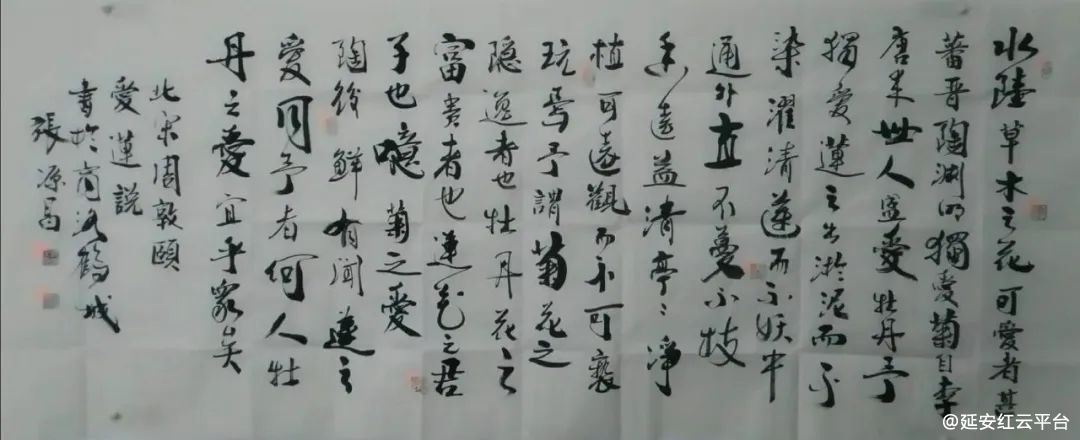 水陸草木之花可愛者甚
蕃晋陶渊明獨愛菊自李
唐来世人盛愛牡丹予
獨愛蓮之出淤泥而不
染濯清蓮而不妖中
通外直不蔓不枝
香遠益清亭〻净
植可遠觀而不可褻
玩焉予謂菊花之
隐逸者也牡丹花之
富貴者也蓮花之君
子也噫菊之愛
陶後鮮有聞蓮之
愛同予者何人牡
丹之愛宜乎衆矣
北宋周敦頤
愛蓮説
書於商洛鶴城
張源
@延安红云平台